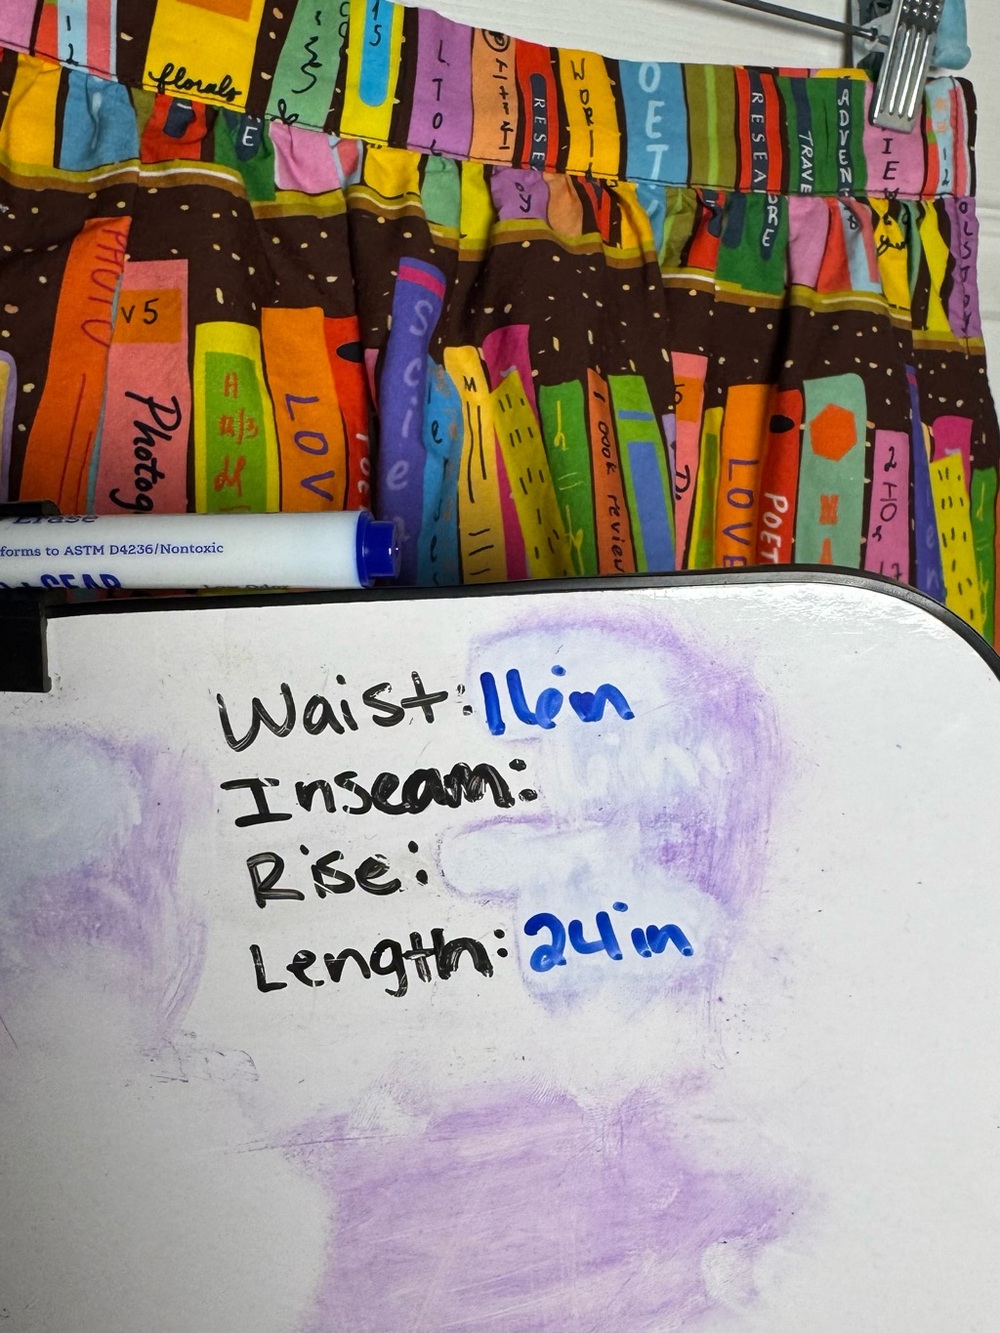 florals
15
LTO
RESE
WORL
OET
RESEA
TRAVE
ADVEN
IE
E
PHOTO
V5
Photog
LOV
Scie
M
look review
5
LOVE
POET
Erase
forms to ASTM D4236/Nontoxic
Waist: 16in
Inseam:
Rise:
Length: 24in